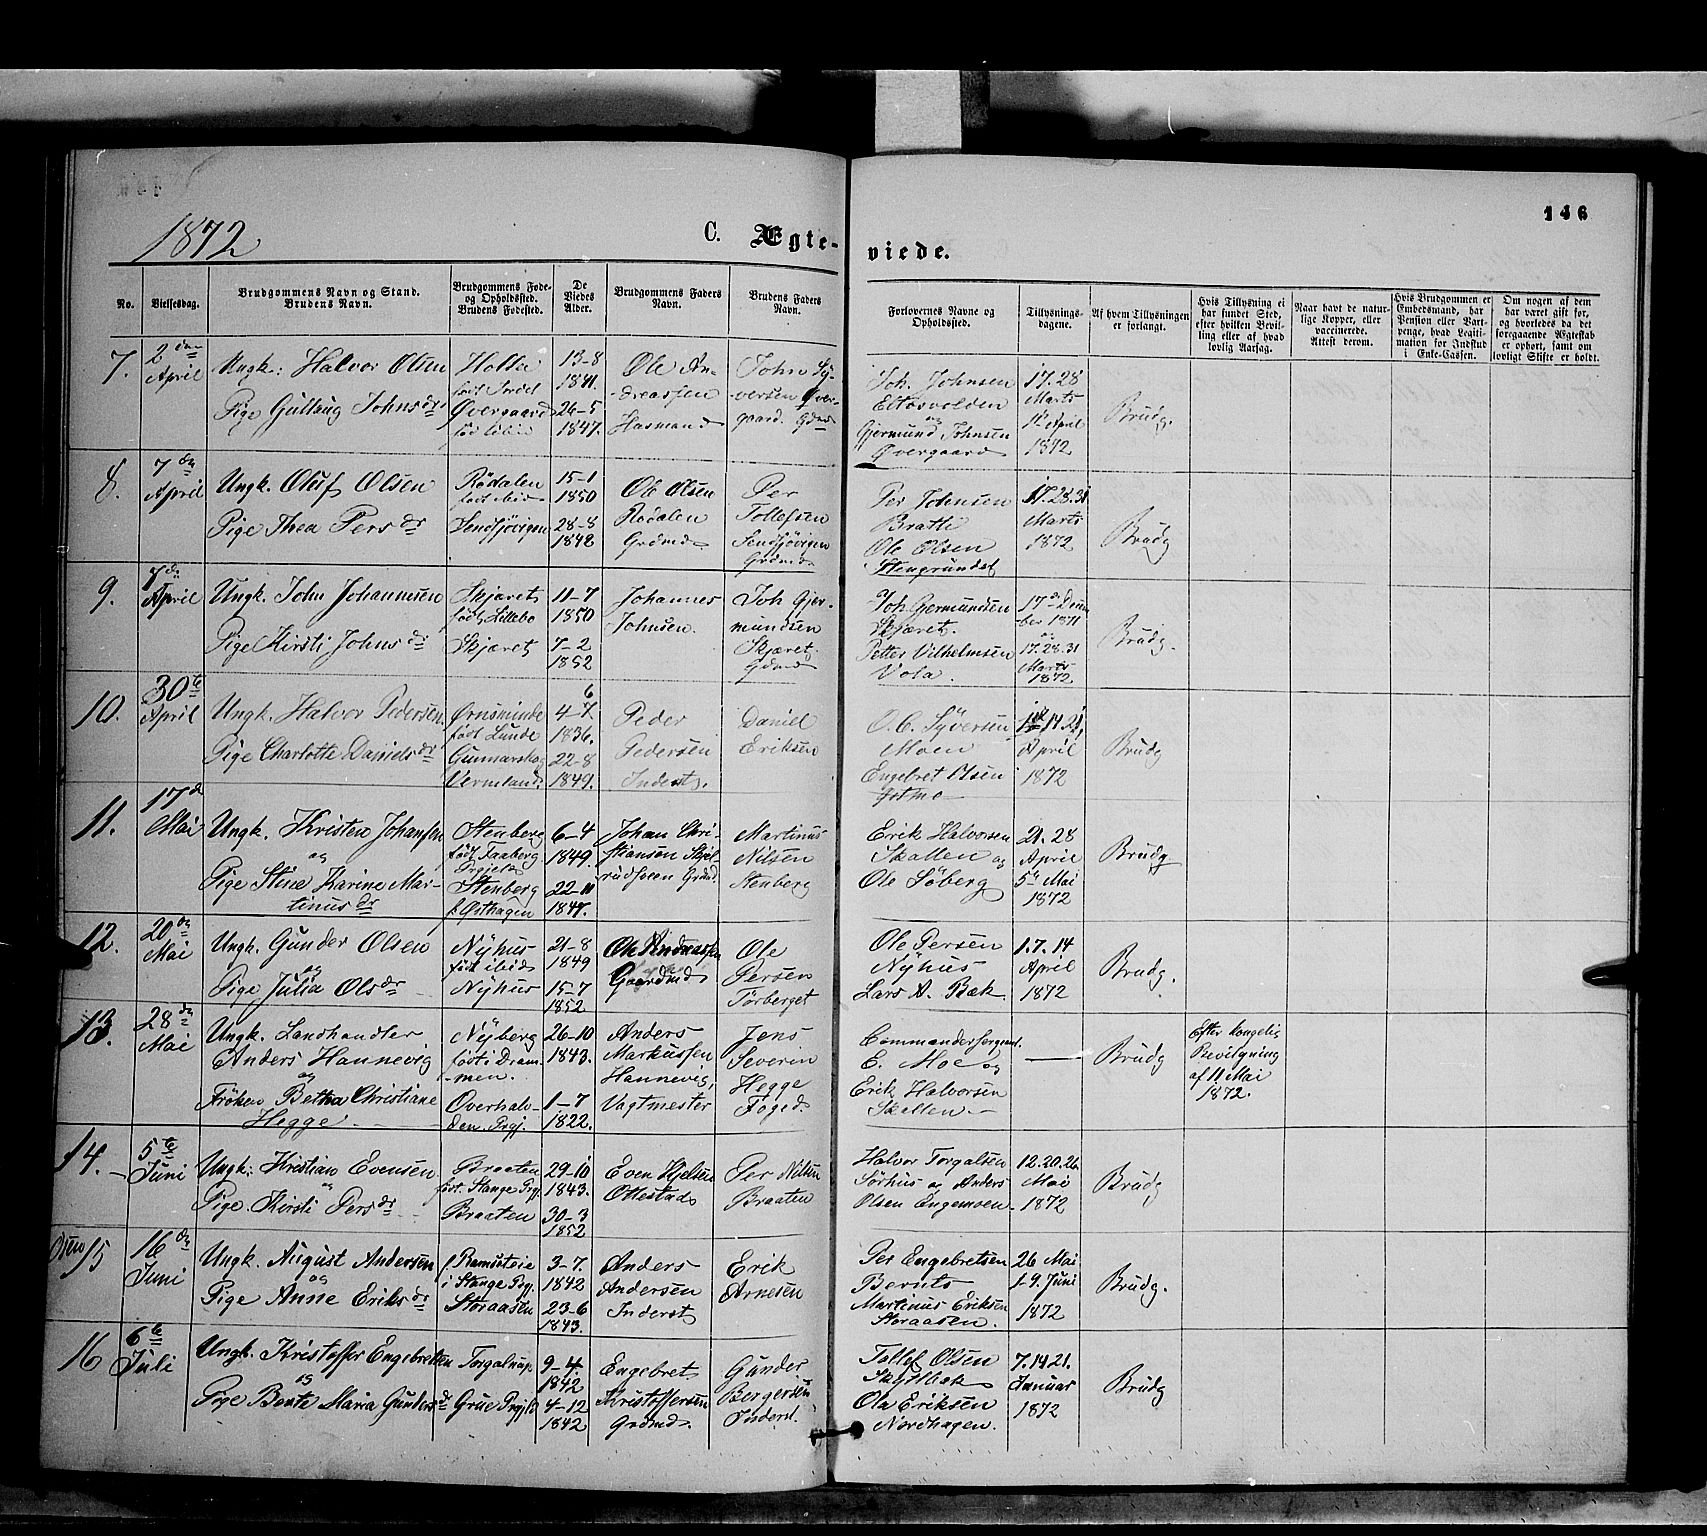 1872
C. Ægte-
viede.
146
No.
Vielsesdag.
Brudgommens Navn og Stand.
Brudens Navn.
Brudgommens Føde-
og Opholdssted.
Brudens Fødested.
De
Viedes
Alder.
Brudgommens Faders
Navn.
Brudens Faders
Navn.
Forlovernes Navne og
Opholdssted.
Tillysnings-
dagene.
Af hvem Tillysningen
er forlangt.
Hvis Tillysning ei
har fundet Sted,
efter hvilken Bevil-
ling eller af hvad
lovlig Aarsag.
Naar havt de natur-
lige Kopper, eller
vaccinerede.
Attest derom.
Hvis Brudgommen er
Embedsmand, har
Pension eller Vart-
penge, hvad Legiti-
mation for Indskud
i Enke-Cassen.
Om nogen af dem
har været gift før,
og hvorledes da det
foregaaende Ægteskab
er ophørt, samt om
lovligt Skifte er holdt.
7.
2den
April
Ungk: Halvor Olsen
Pige Gullaug Johnsdr
Holtea
Øvergaard
13-8
1841.
26-5
1847.
Ole An-
dreassen
Hasmand
John Sy-
versen Øver-
gaard. Gdmd
Joh. Johnsen
Eltosvolden
og
Gjermund Johnsen
Øvergaard
17. 28
Marts
1te April
1872
Brudg.
8.
7de
April
Ungk. Oluf Olsen
Pige Thea Persdr
Rödalen
født ibid
Sendsjövigen
15-1
1850
28-8
1842
Ole Olsen
Rödalen
Grdmd
Per
Tollefsen
Sendsjövigen
Grdmd
Per Johnsen
Bratli
Ole Olsen
Stengrundet
17. 28. 31
Marts
1872
Brudg
9.
7de
April
Ungk. John Johannesen
Pige Kirsti Johnsdr
Skjæret
født Lillebo
Skjæret
11-7
1850
7-2
1852
Johannes
Johnsen.
Joh Gjer-
mundsen
Skjæret.
Gdmd
Joh. Gjermundsen
Skjæret.
og
Petter Vilhelmsen
Vola.
17de Decem
ber 1871
17. 28. 31
Marts
1872
Brudg.
10.
30te
April
Ungk. Halvor Pedersen
Pige Charlotte Danielsdr
Ørnsminde
født Lunde
Gunnarskog
Vermland
6
4-7
1836.
22-8
1849.
Peder
Pedersen
Inderst.
Daniel
Eriksen
O. C. Syversen
Moen
Engebret Olsen
14. 21
April
1872
Brudg
11.
17de
Mai
Ungk. Kristen Johansen
og
Pige Stine Karine Mar-
tinusdr
Stenberg
født Faaberg
Prgjeld
Stenberg
f. Østhagen
6-4
1849.
22-11
1847.
Johan Chri-
stiansen Skjel-
rudsveen Grdmd
Martinus
Nilsen
Stenberg
Erik Halvorsen
Skallen og
Ole Söberg
21. 28
April
5te Mai
1872
Brudg
12.
20de
Mai
Ungk. Gunder Olsen
og
Pige Julia Olsdr
Nyhus
født ibid
Nyhus
21-8
1849
15-7
1852
Ole Andreassen
Gaardmd
Ole
Persen
Törberget
Ole Persen
Nyhus
Lars A. Bæk
1. 7. 14
April
1872
Brudg.
13.
28de
Mai
Ungk. Landhandler
Anders Hannevig
og
Fröken Betha Christiane
Hegge
Nyberg
født i Dram-
men.
Overhalv-
den. Prgj.
26-10
1843.
1-7
1822.
Anders
Markussen
Hannevig,
Vagtmester
Jens
Severin
Hegge
Foged
Commandersergeant.
E. Moe og
Erik Halvorsen
Skallen
Brudg
Efter kongelig
Bevilgning
af 11 Mai
1872.
14.
5te
Juni
Ungk: Kristian Evensen
og
Pige. Kirsti Persdr
Braaten
født. Stange Prgj.
Braaten
29-10
1843.
30-3
1852
Even Kjelsen
Ottestad
Per Nilsen
Braaten
Halvor Torgalsen
Sörhus og Anders
Olsen Engemoen.
12. 20. 26
Mai
1872
Brudg
15
16de
Juni
Ungk. August Andersen
og
Pige Anne Eriksdr
f. Ramsteie
i Stange Prgj.
Storaasen
3-7.
1842
23-6
1843.
Anders
Andersen
Inderst
Erik
Arnesen
Per Engebretsen
Bernts
Martinus Eriksen
Storaasen.
26 Mai
1-9. Juni
1872
Brudg.
16
6te
Juli
Ungk. Kristoffer Engebretsen
og
Pige Bente Maria Gundersdr
Grue Prgjld
9-4
1842
4-12
1842
Engebret
Kristoffersen
Grdmd
Gunder
Bergersen
Inderst.
Tollef Olsen
Skyttbak
Ola Eriksen
Nordhagen.
7. 14 21.
Januar
1872
Brudg